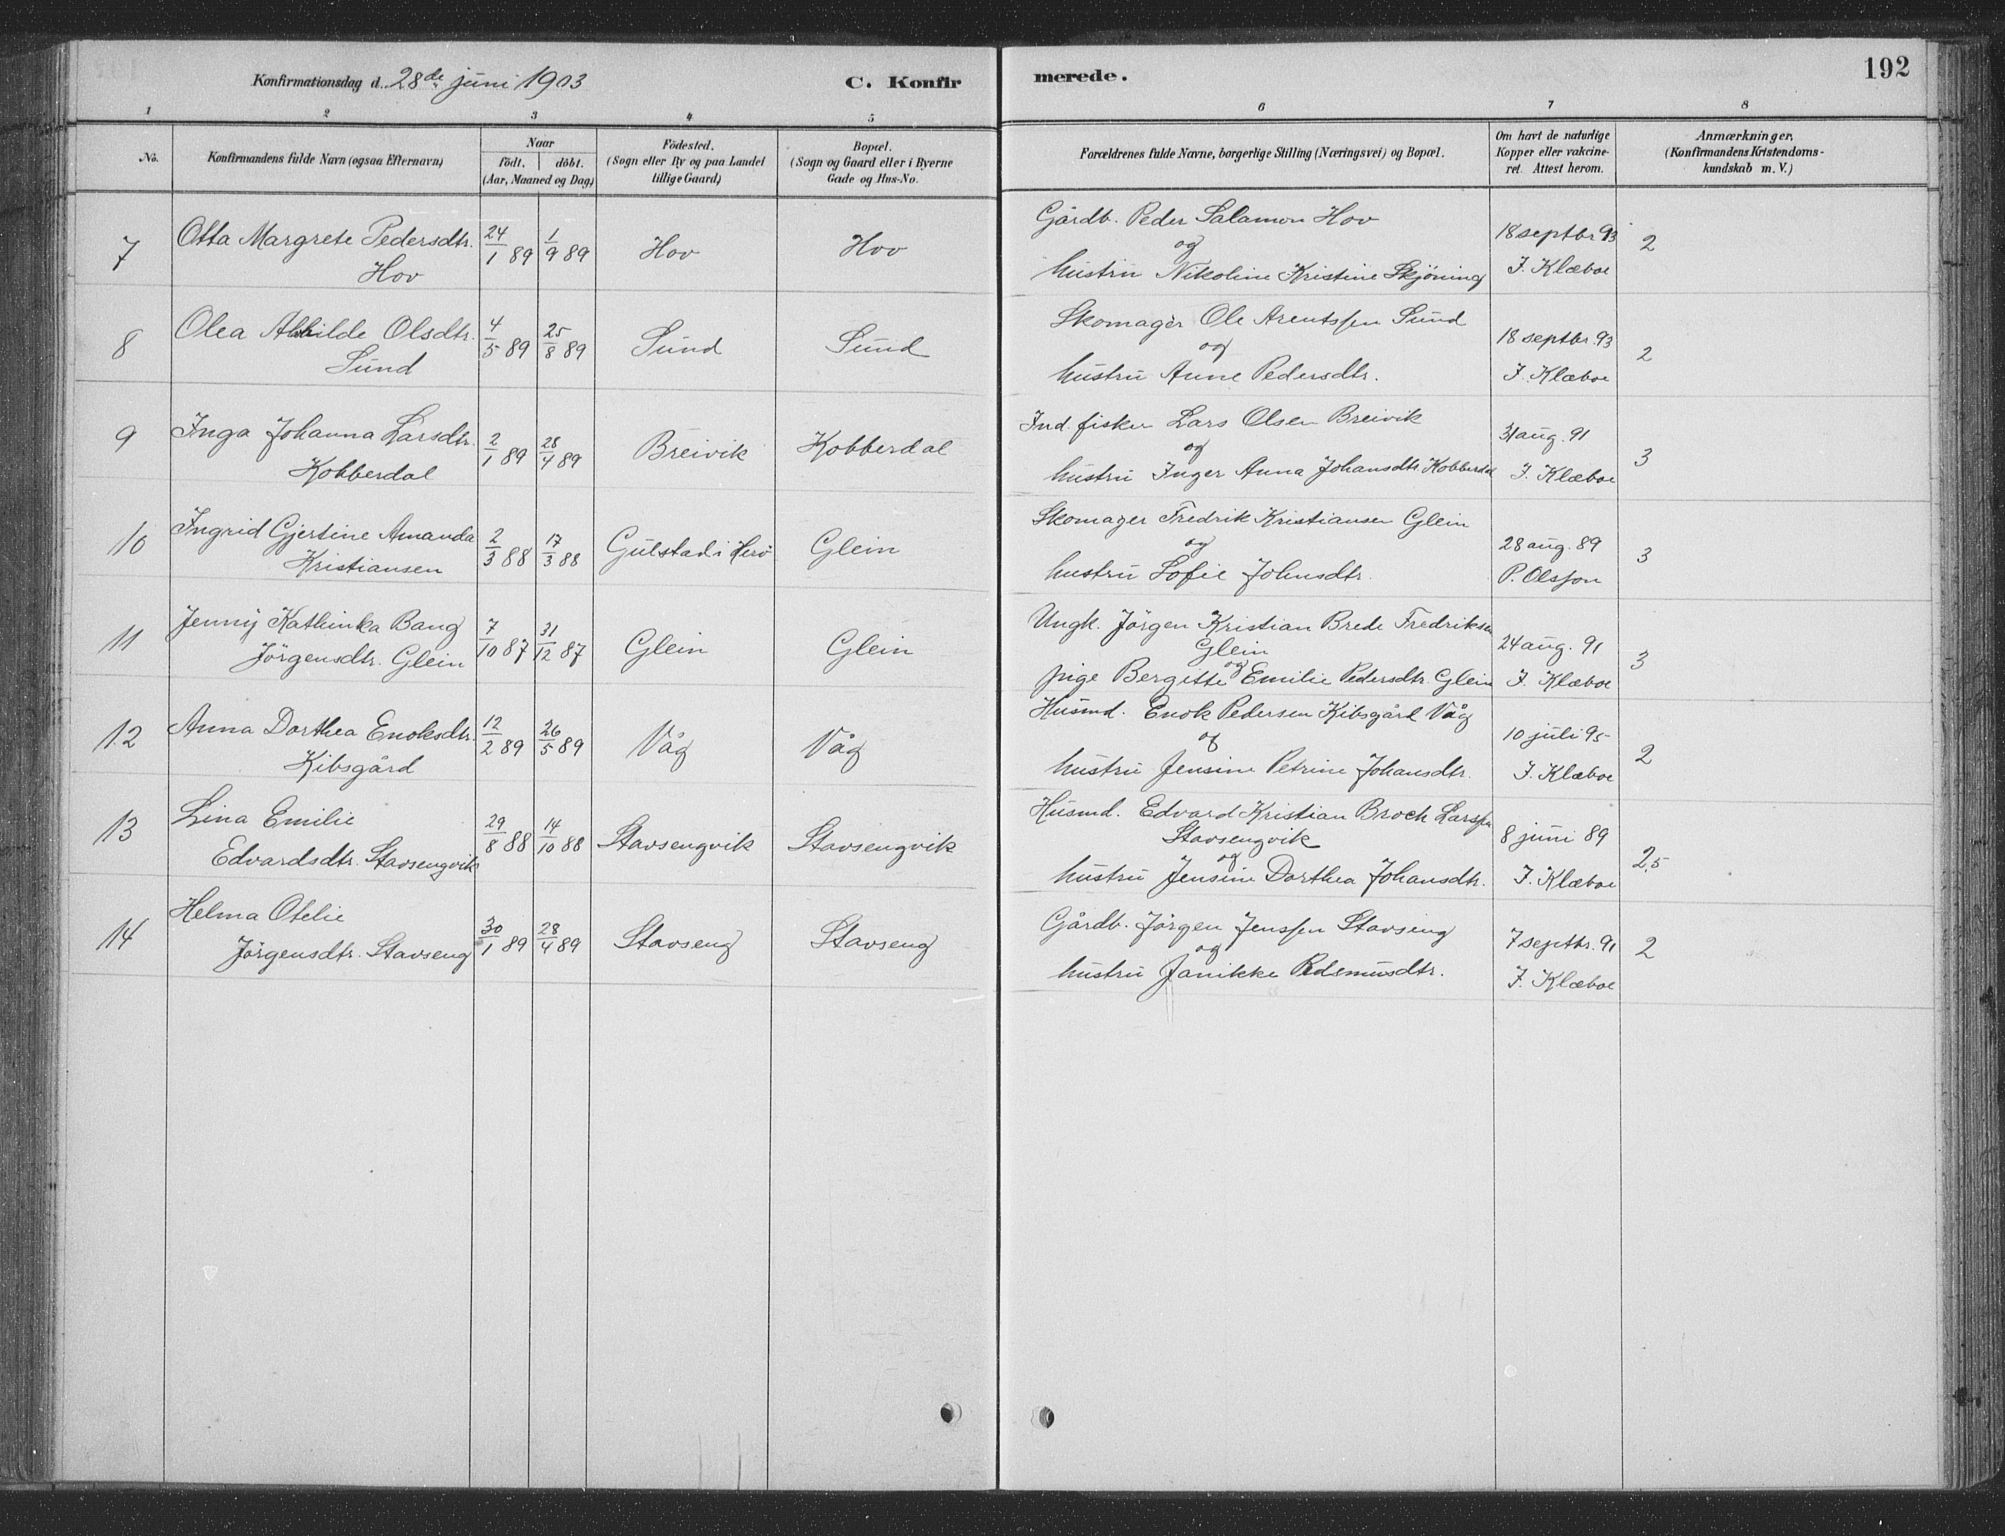 Konfirmationsdag d. 28de juni 1903
C. Konfir
merede.
192
1 2 3 4 5 6 7 8
No.
Konfirmandens fulde Navn (ogsaa Efternavn)
Naar
födt. döbt.
(Aar, Maaned og Dag)
Födested.
(Sogn eller By og paa Landet
tillige Gaard)
Bopæl.
(Sogn og Gaard eller i Byerne
Gade og Hus-No.
Forældrenes fulde Navne, borgerlige Stilling (Næringsvei) og Bopæl.
Om havt de naturlige
Kopper eller vakcine-
ret. Attest herom.
Anmærkninger.
(Konfirmandens Kristendoms-
kundskab m. V.)
7
Otta Margrete Pedersdtr.
Hov
24/1 89
1/9 89
Hov
Hov
Gårdb. Peder Salamon Hov
og
hustru Nikoline Kristine Skjöning
18 septbr 93
J. Klæboe
2
8
Olea Olsdtr.
Sund
4/5 89
25/8 89
Sund
Sund
Skomager Ole Arentssen Sund
og
hustru Anne Pedersdtr.
18 septbr. 93
J. Klæboe
2
9
Inga Johanna Larsdtr.
Kobberdal
2/1 89
28/4 89
Breivik
Kobberdal
Ind. fisker Lars Olsen Breivik
og
hustru Inger Anna Johansdtr. Kobberdal
31 aug. 91
J. Klæboe
3
10
Ingrid Gjertine Amanda
Kristiansen
2/3 88
17/3 88
Gulstad i Herö
Glein
Skomager Fredrik Kristiansen Glein
og
hustru Sofie Johnsdtr.
28 aug. 89
P. Olsson
3
11
Jenny Kathinka Bang
Jörgensdtr. Glein
7/10 87
31/12 87
Glein
Glein
Ungk. Jörgen Kristian Brede Fredriksen
Glein
og
pige Bergitte Emilie Pedersdtr. Glein
24 aug. 91
J. Klæboe
3
12
Anna Dorthea Enoksdtr.
Kibsgård
12/2 89
26/5 89
Våg
Våg
Husmd. Enok Pedersen Kibsgård Våg
og
hustru Jensine Petrine Johansdtr.
10 juli 95
J. Klæboe
2
13
Lina Emilie
Edvardsdtr. Stavsengvik
29/8 88
14/10 88
Stavsengvik
Stavsengvik
Husmd. Edvard Kristian Broch Larssen
Stavsengvik
og
hustru Jensine Dorthea Johansdtr.
8 juni 89
J. Klæboe
2,5
14
Helma Otelie
Jörgensdtr. Stavseng
30/1 89
28/4 89
Stavseng
Stavseng
Gårdb. Jörgen Jenssen Stavseng
og
hustru Janikke
7 septbr. 91
J. Klæboe
2